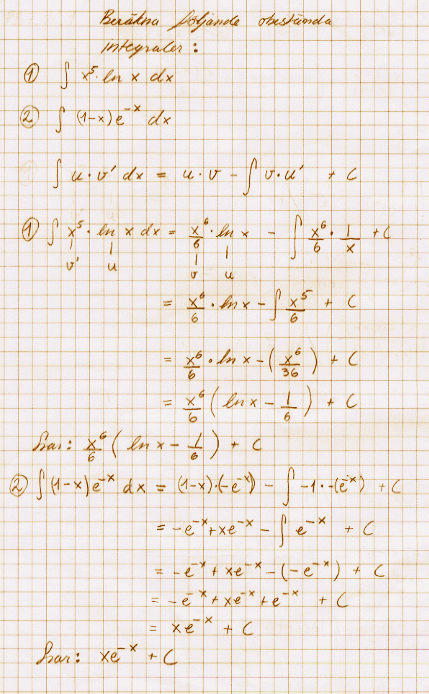 Beräkna följande obestämda
integraler:
① ∫ x⁵·ln x dx
② ∫ (1-x)e⁻ˣ dx
∫ u·v' dx = u·v - ∫ v·u' + C
① ∫ x⁵·ln x dx = x⁶/6 · ln x - ∫ x⁶/6 · 1/x + C
v' u v u
= x⁶/6 · ln x - ∫ x⁵/6 + C
= x⁶/6 · ln x - (x⁶/36) + C
= x⁶/6 (ln x - 1/6) + C
Svar: x⁶/6 (ln x - 1/6) + C
② ∫ (1-x)e⁻ˣ dx = (1-x)·(-e⁻ˣ) - ∫ -1·-(e⁻ˣ) + C
= -e⁻ˣ+xe⁻ˣ - ∫ e⁻ˣ + C
= -e⁻ˣ + xe⁻ˣ -(-e⁻ˣ) + C
= -e⁻ˣ + xe⁻ˣ + e⁻ˣ + C
= xe⁻ˣ + C
Svar: xe⁻ˣ + C